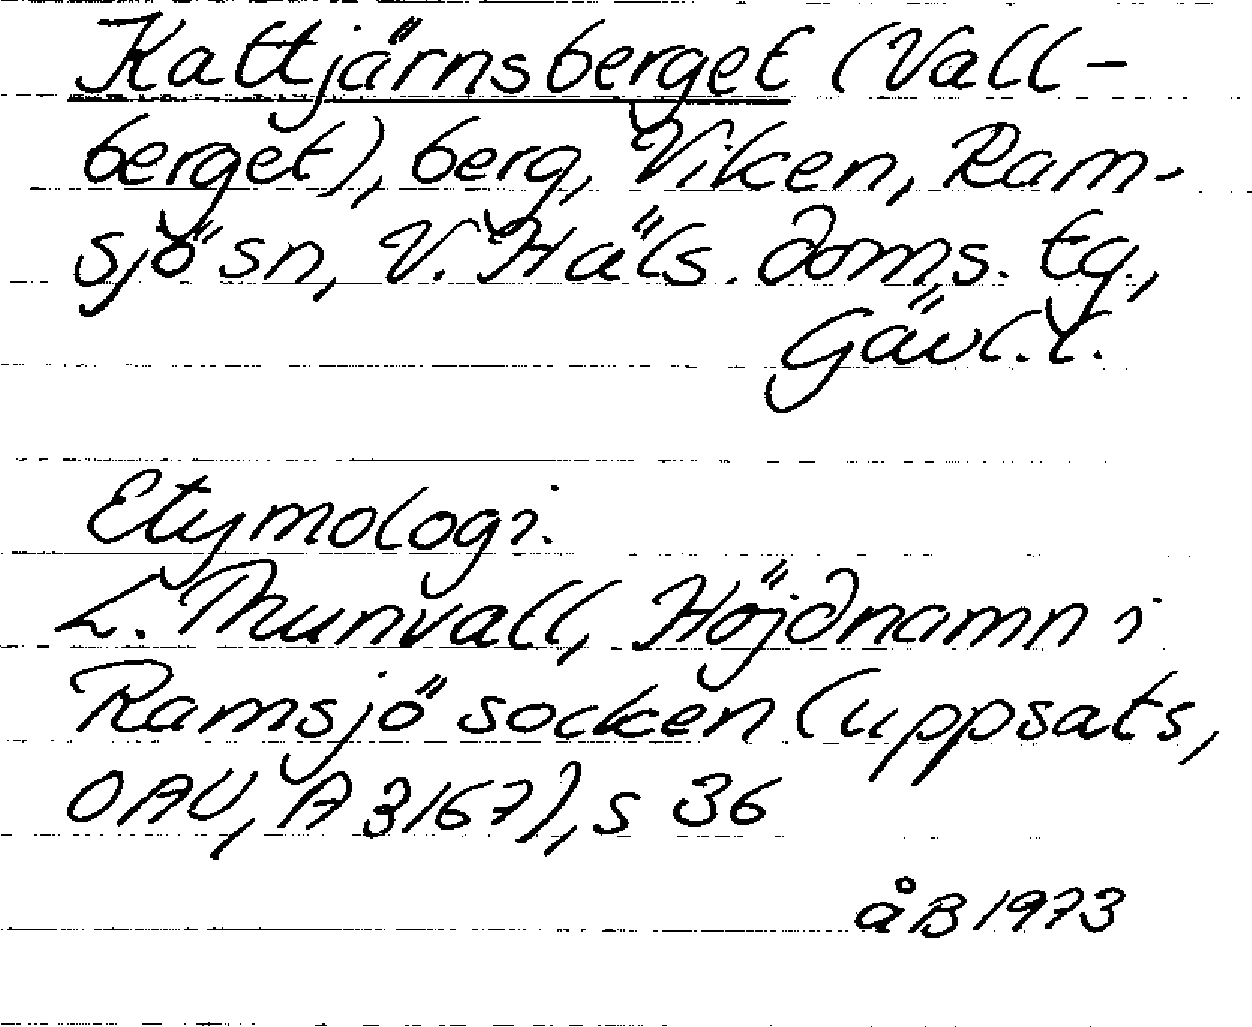 Kattjärnsberget (Vall-
berget), berg, Viken, Ram-
sjö sn, V. Häls. doms. tg.,
Gävl. l.
Etymologi.
L. Thunvall, Höjdnamn i
Ramsjö socken (uppsats,
OAU, A 3167), s 36
åB 1973